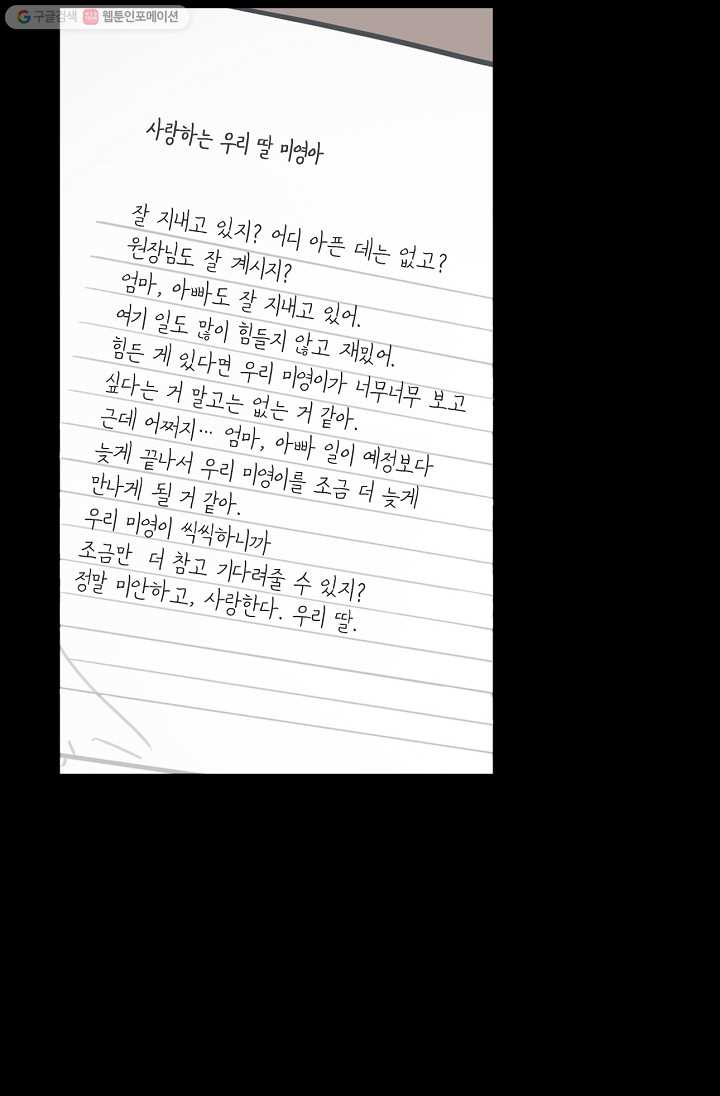 구글검색 웹툰인포메이션
사랑하는 우리 딸 미영아
잘 지내고 있지? 어디 아픈 데는 없고?
원장님도 잘 계시지?
엄마, 아빠도 잘 지내고 있어.
여기 일도 많이 힘들지 않고 재밌어.
힘든 게 있다면 우리 미영이가 너무너무 보고
싶다는 거 말고는 없는 거 같아.
근데 어쩌지… 엄마, 아빠 일이 예정보다
늦게 끝나서 우리 미영이를 조금 더 늦게
만나게 될 거 같아.
우리 미영이 씩씩하니까
조금만 더 참고 기다려줄 수 있지?
정말 미안하고, 사랑한다. 우리 딸.